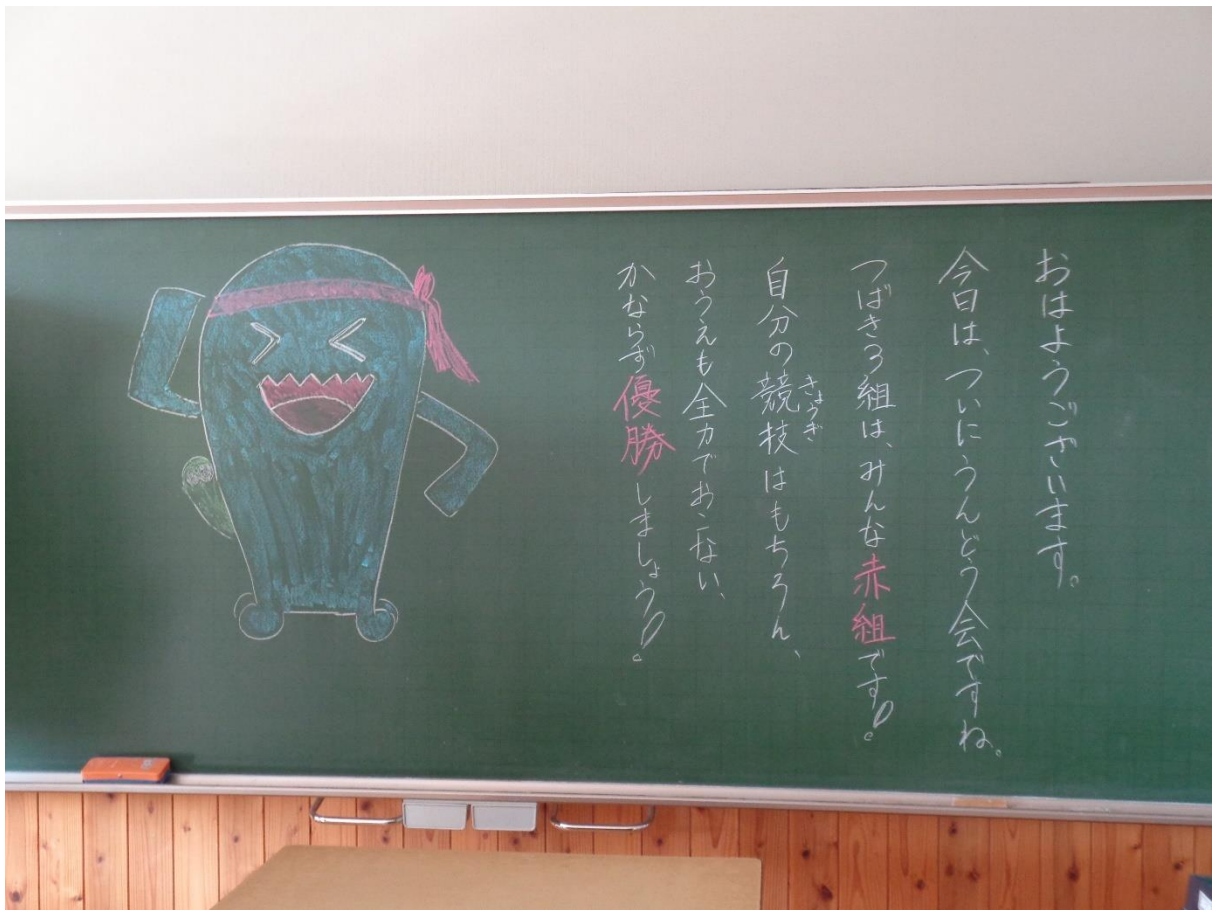 おはようございます。
今日は、ついにうんどう会ですね。
つばき3組は、みんな赤組です!
自分の競技はもちろん、
きょうぎ
おうえも全力でおこない、
かならず優勝しましょう!